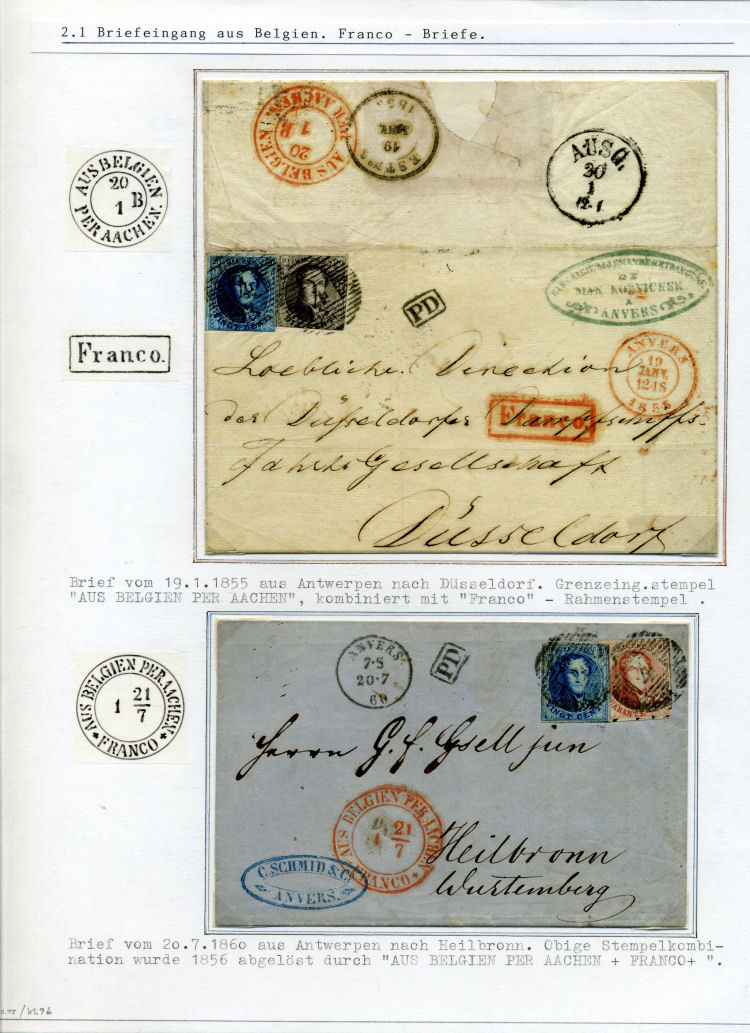 2.1 Briefeingang aus Belgien. Franco - Briefe.
AUS BELGIEN
20
1 B
PER AACHEN.
Franco.
AUS BELGIEN
20
1 B
PER AACHEN.
EST No 3
19
JANV.
1855
AUSG.
20
1
12-1
PD
DE
MAX KOENICKER
A
ANVERS
ANVERS
19
JANV.
12-1S
1855
Loebliche Direction
der Düsseldorfer Dampfschiffs-
Fahrts Gesellschaft
Franco.
Düsseldorf
Brief vom 19.1.1855 aus Antwerpen nach Düsseldorf. Grenzeing.stempel
"AUS BELGIEN PER AACHEN", kombiniert mit "Franco" - Rahmenstempel .
AUS BELGIEN PER AACHEN
1 21/7
* FRANCO *
ANVERS
7-S
20-7
60
PD
VINGT CENT
Herrn G. f. Gsell jun
AUS BELGIEN PER AACHEN
1 21/7
FRANCO *
Heilbronn
Würtemberg
C. SCHMID & Co
ANVERS.
Brief vom 2o.7.186o aus Antwerpen nach Heilbronn. Obige Stempelkombi-
nation wurde 1856 abgelöst durch "AUS BELGIEN PER AACHEN + FRANCO+ ".